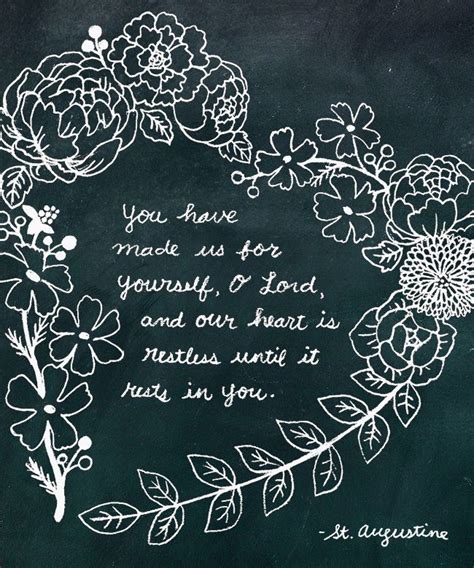 You have
made us for
yourself, O Lord,
and our heart is
restless until it
rests in you.
-St. Augustine